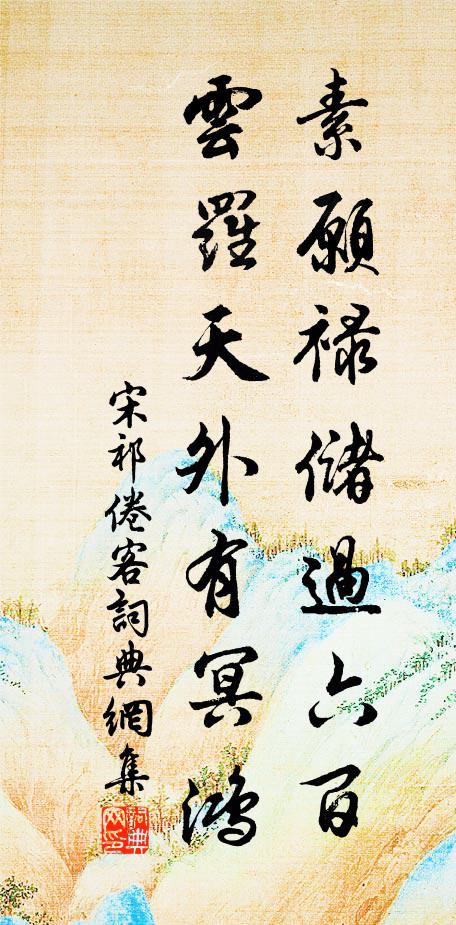 素願禄儲過六百
雲羅天外有冥鴻
宋祁倦客詞典網集
詞典网印